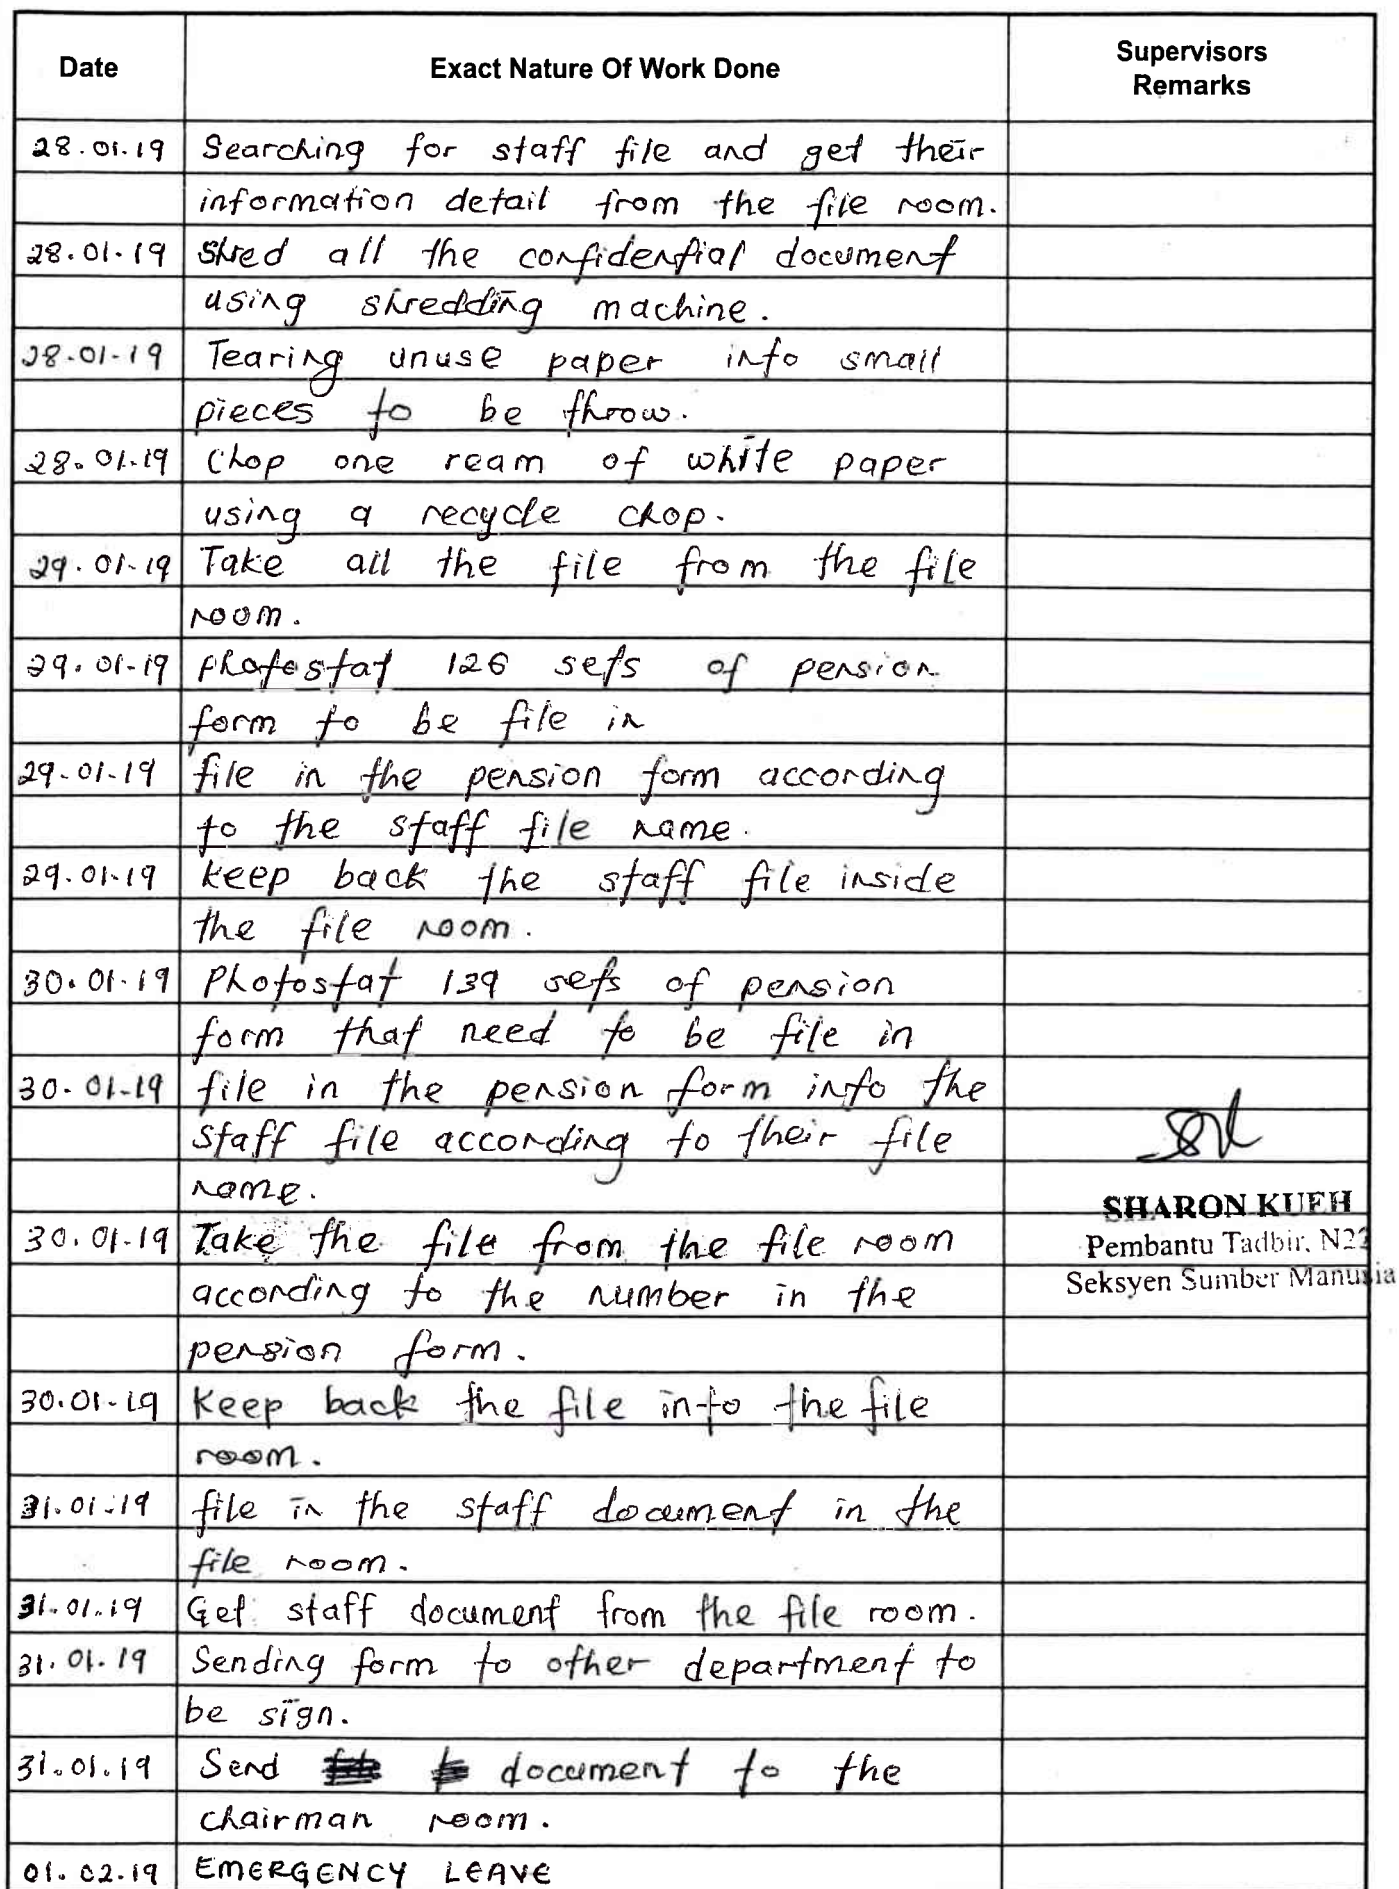 Date Exact Nature Of Work Done Supervisors
Remarks
28.01.19 Searching for staff file and get their
information detail from the file room.
28.01.19 Shred all the confidential document
using shredding machine.
28.01.19 Tearing unuse paper into small
pieces to be throw.
28.01.19 Chop one ream of white paper
using a recycle chop.
29.01.19 Take all the file from the file
room.
29.01.19 photostat 126 sets of pension
form to be file in
29.01.19 file in the pension form according
to the staff file name.
29.01.19 keep back the staff file inside
the file room.
30.01.19 Photostat 139 sets of pension
form that need to be file in
30.01.19 file in the pension form into the
staff file according to their file
name.
SHARON KUEH
30.01.19 Take the file from the file room
Pembantu Tadbir, N22
according to the number in the
Seksyen Sumber Manusia
pension form.
30.01.19 Keep back the file into the file
room.
31.01.19 file in the staff document in the
file room.
31.01.19 Get staff document from the file room.
31.01.19 Sending form to other department to
be sign.
31.01.19 Send document to the
chairman room.
01.02.19 EMERGENCY LEAVE